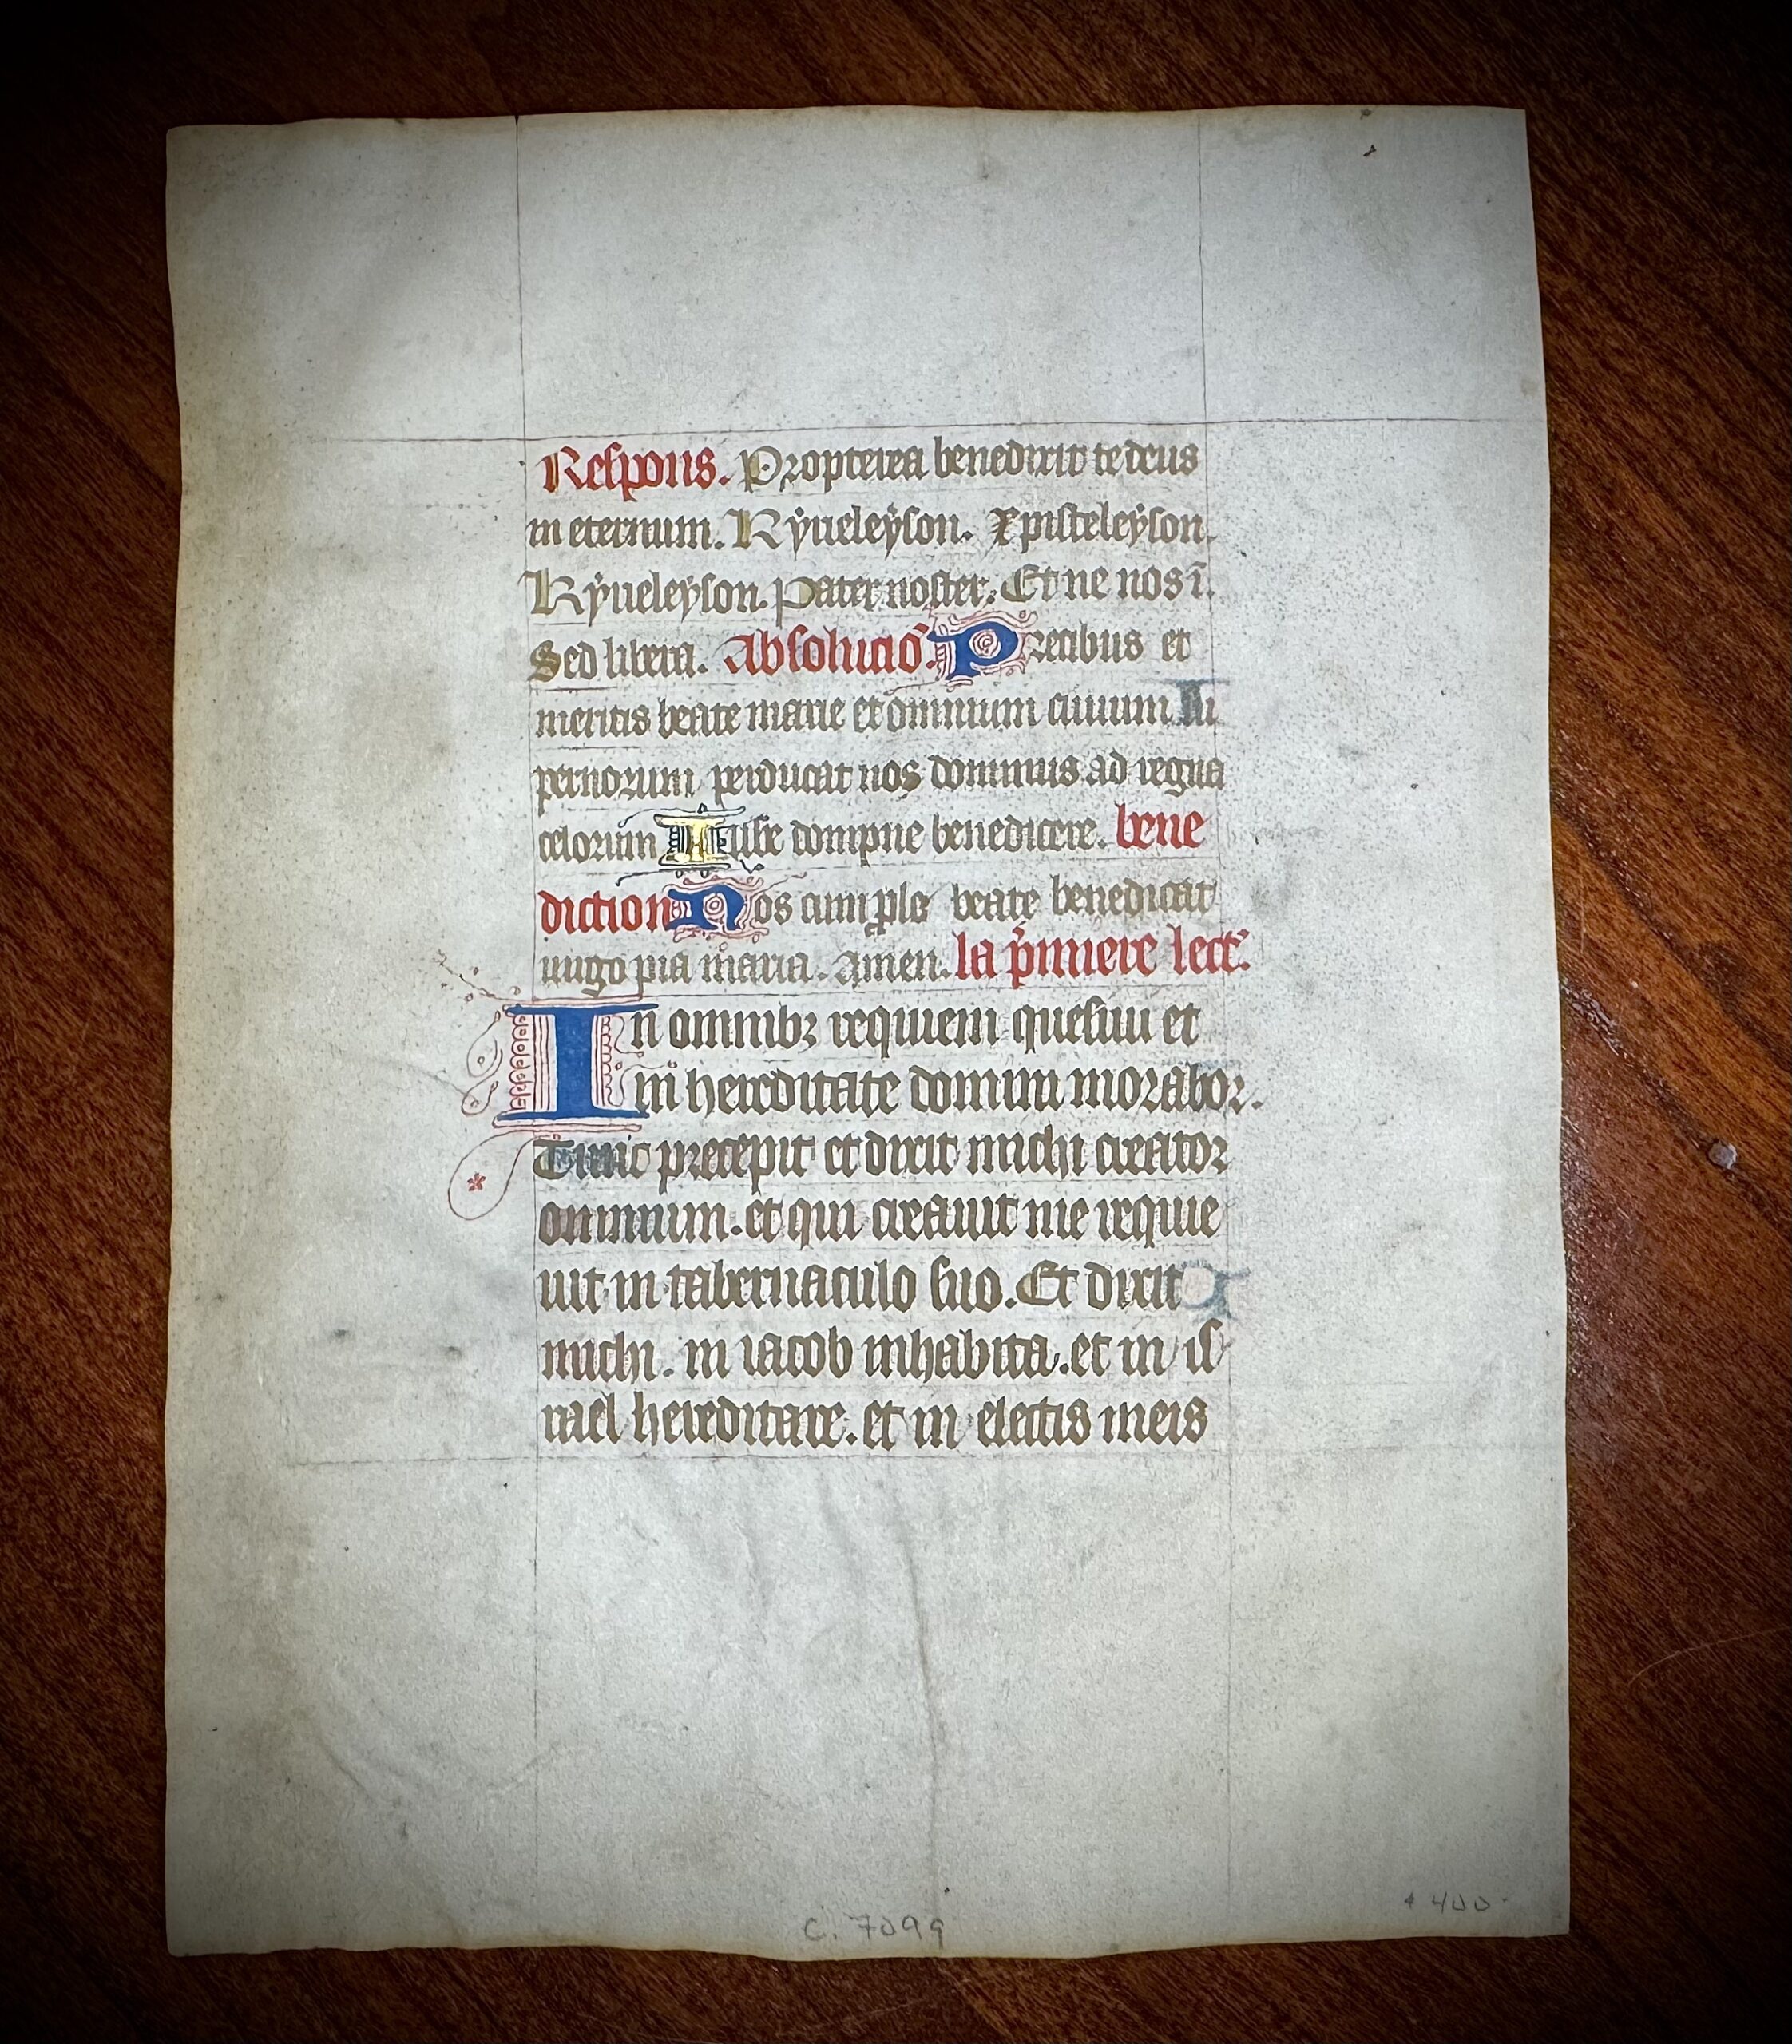 Respons. Propterea benedixit te deus
in eternum. Kyrieleyson. Xpisteleyson.
Kyrieleyson. Pater noster. Et ne nos ī.
Sed libera. Absolucio. Precibus et
meritis beate marie et omnium ciuium su
pernorum perducat nos dominus ad regna
celorum Iube dompne benedicere. bene
diction Nos cum ple beate benedicat
uirgo pia maria. Amen. la p̄miere lect.
In omnibꝫ requiem quesiui et
in hereditate domini morabor.
Tunc precepit et dixit michi creator
omnium. et qui creauit me requie
uit in tabernaculo suo. Et dixit
michi. in iacob inhabita. et in is
rael hereditare. et in electis meis
C. 7099
400